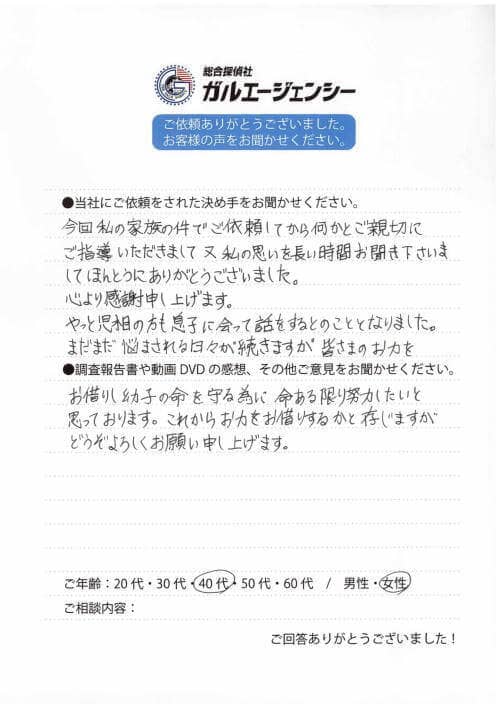 総合探偵社
ガルエージェンシー
ご依頼ありがとうございました。
お客様の声をお聞かせください。
●当社にご依頼をされた決め手をお聞かせください。
今回私の家族の件でご依頼してから何かとご親切に
ご指導いただきまして又私の思いを長い時間お聞き下さいま
してほんとうにありがとうございました。
心より感謝申し上げます。
やっと児相の方も息子に会って話をするとのこととなりました。
まだまだ悩まされる日々が続きますが皆さまのお力を
●調査報告書や動画DVDの感想、その他ご意見をお聞かせください。
お借りし幼子の命を守る為に命ある限り努力したいと
思っております。これからお力をお借りするかと存じますが
どうぞよろしくお願い申し上げます。
ご年齢：20代・30代・40代・50代・60代 / 男性・女性
ご相談内容：
ご回答ありがとうございました！